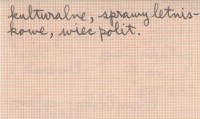 kulturalne, sprawy letnis-
kowe, wiec polit.